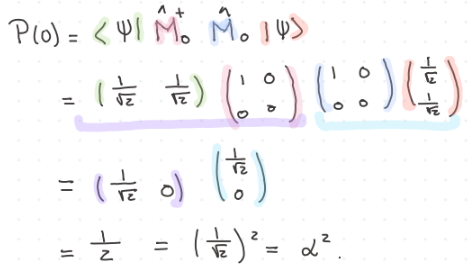 P(0) = ⟨Ψ| M̂₀⁺ M̂₀ |Ψ⟩
= (1/√2 1/√2) (1 0; 0 0) (1 0; 0 0) (1/√2; 1/√2)
= (1/√2 0) (1/√2; 0)
= 1/2 = (1/√2)² = α².